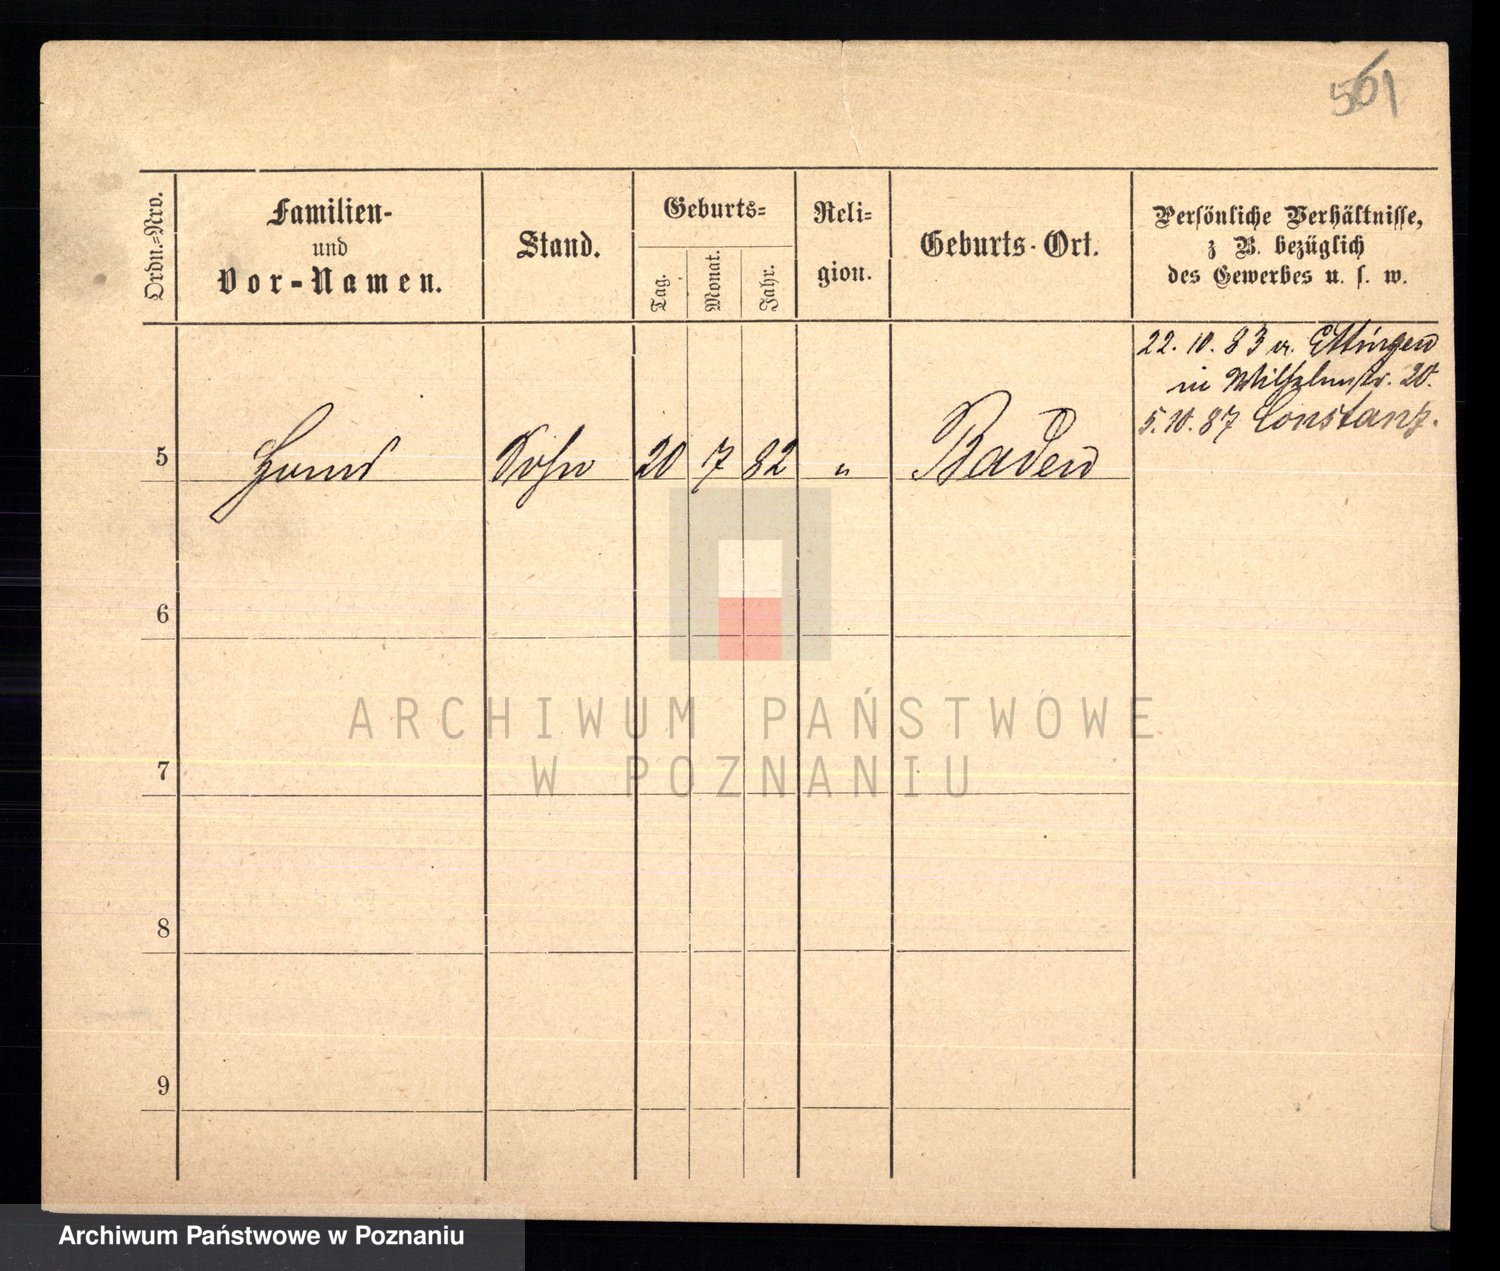 561
Ordn.=Nro.
Familien-
und
Vor-Namen.
Stand.
Geburts=
Tag.
Monat.
Jahr.
Reli=
gion.
Geburts-Ort.
Persönliche Verhältnisse,
z B. bezüglich
des Gewerbes u. s. w.
22. 10. 83 v. Ettingen
in Wilhelmstr. 20.
5. 10. 87 Constanz.
5 Sohn 20 7 82 " Baden
6
7
8
9
ARCHIWUM PAŃSTWOWE
W POZNANIU
Archiwum Państwowe w Poznaniu